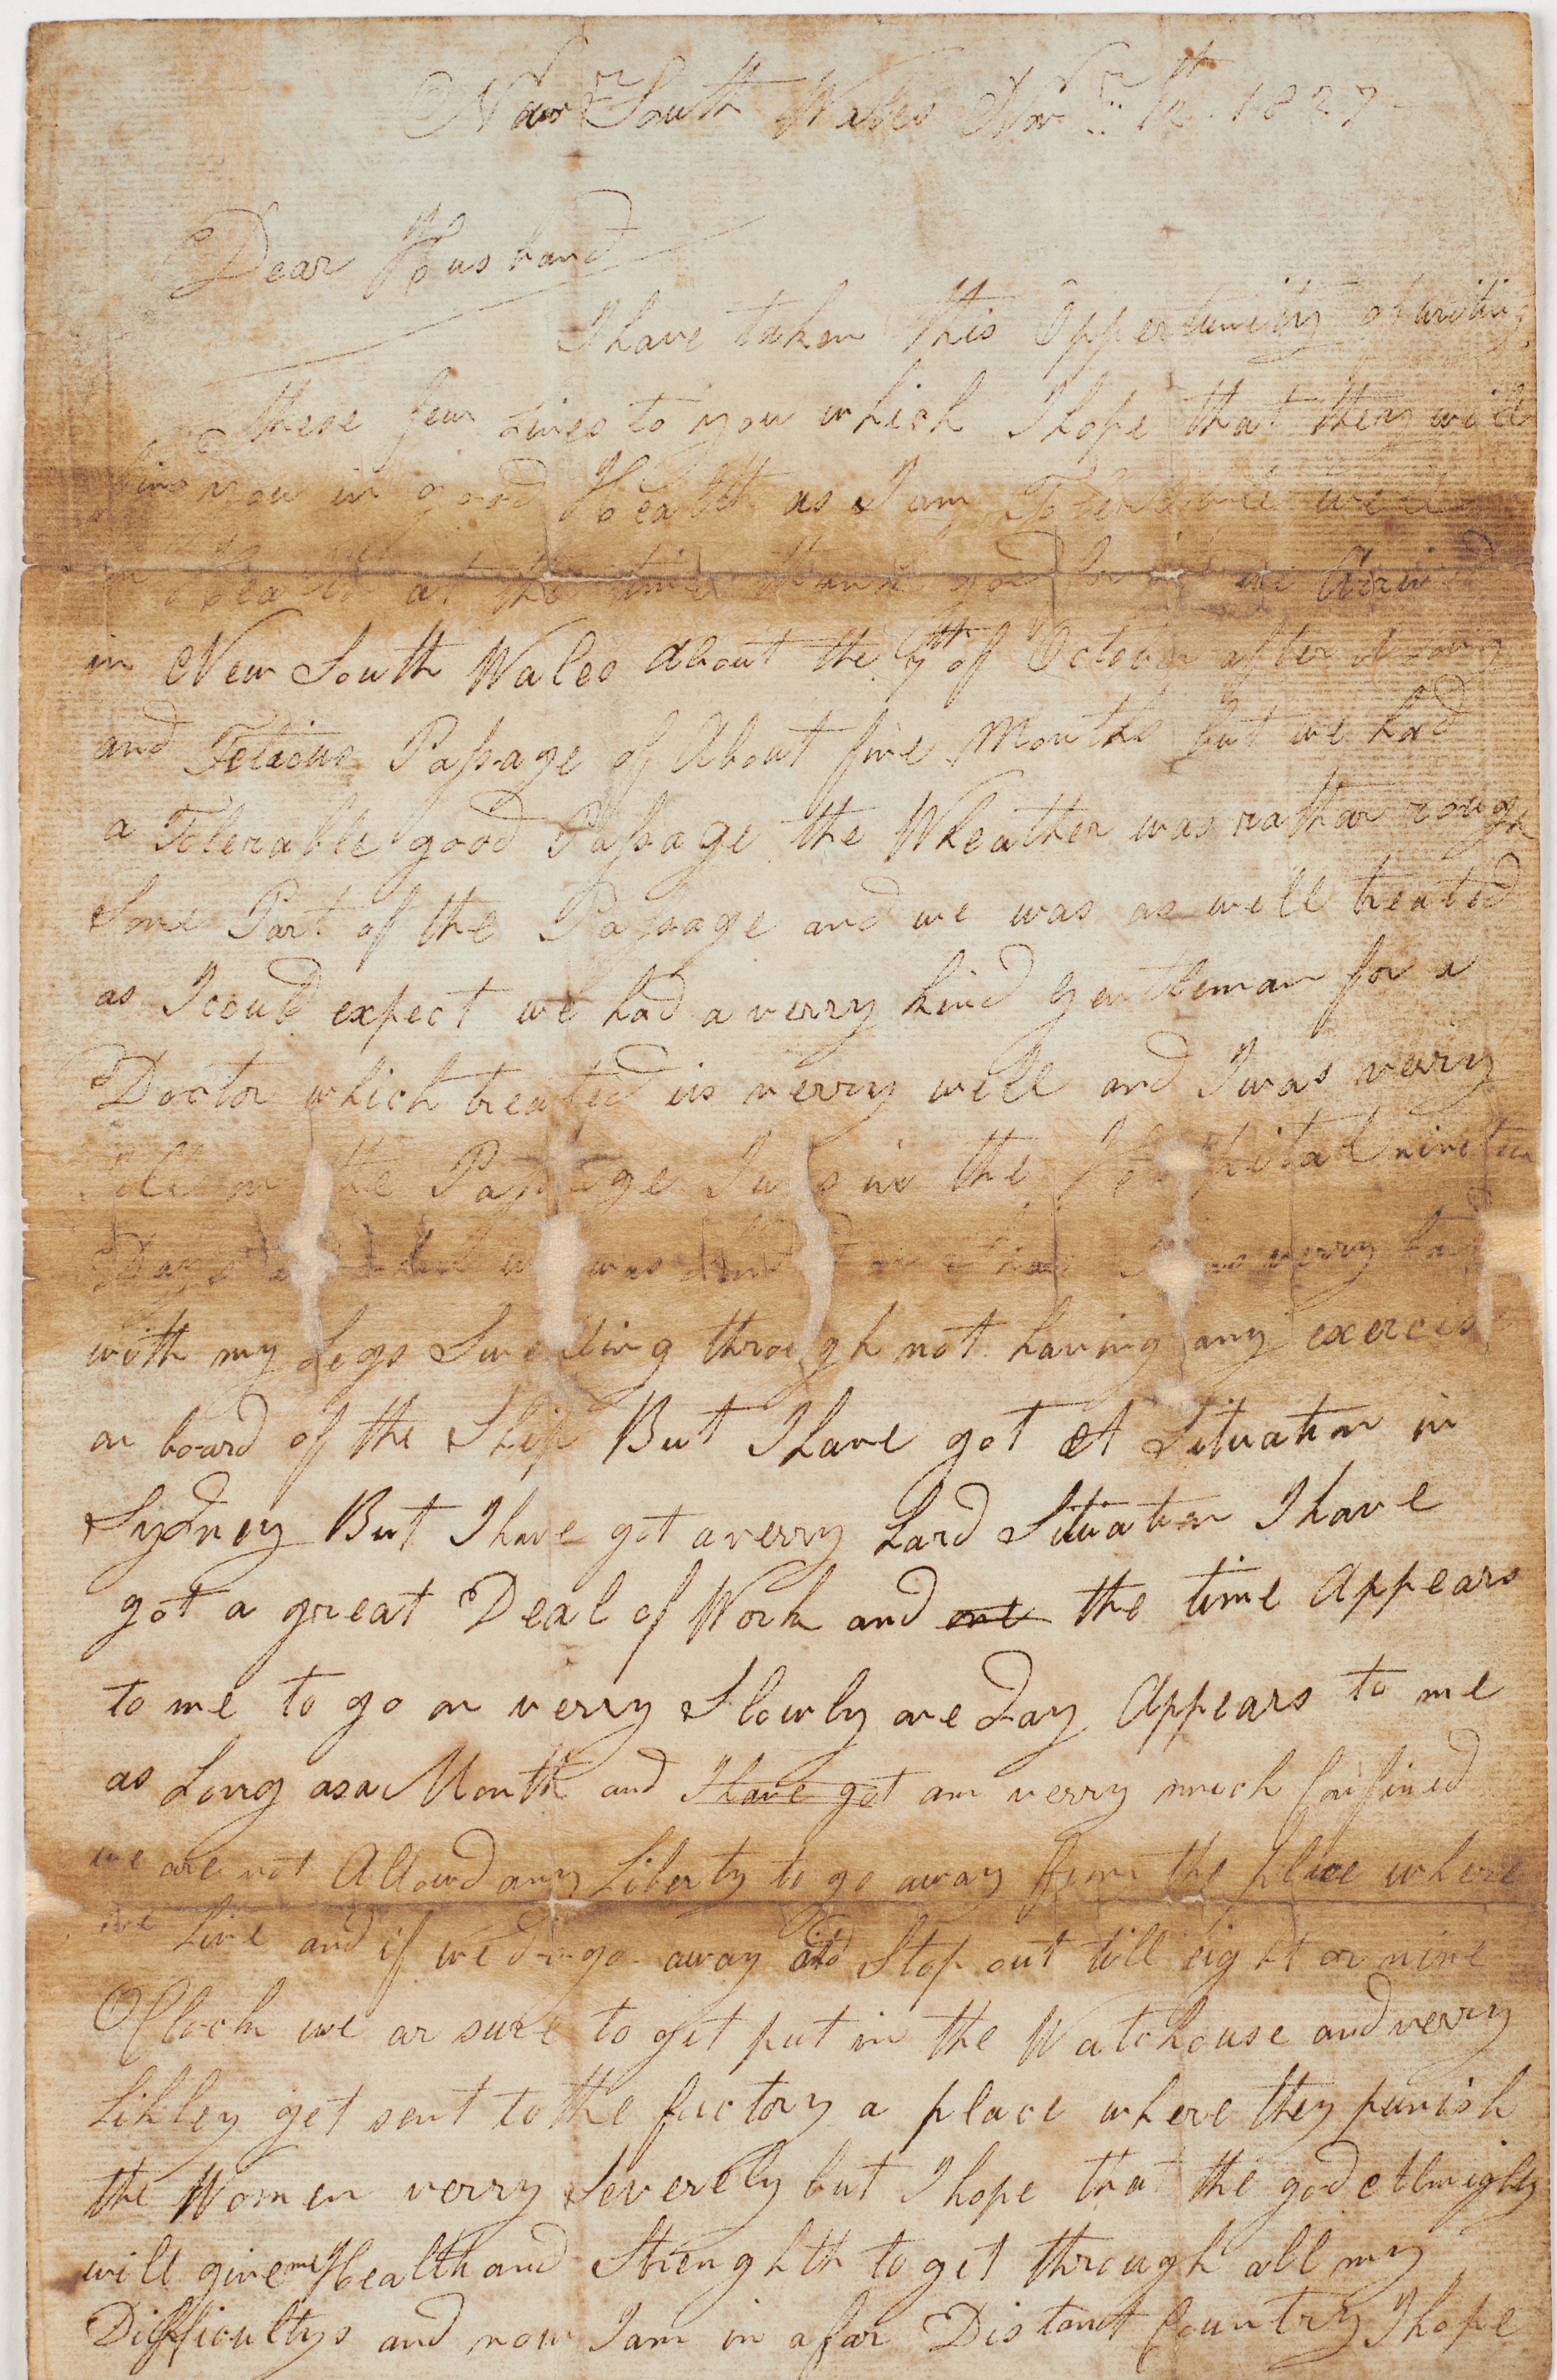 New South Wales Novr 12th 1827
Dear Husband
I have taken this Oppertunity of writing
these few Lines to you which I hope that they will
find you in good Health as I am Tolerable well
in Health at the time thank god for it we Arrived
in New South Wales About the 7th of October after a Long
and Tetious Passage of About five Months but we had
a Tolerable good Passage the Wheather was rathar rough
Some Part of the Passage and we was as well treated
as I could expect we had a verry kind gentleman for a
Doctor which treated us verry well and I was verry
Ill on the Passage I was in the Hospital nineteen
Days was verry bad
with my Legs Swelling through not having any exercise
on board of the Ship But I have got A Situation in
Sydney But I have got a verry hard Situation I have
got a great Deal of Work and one the time Appears
to me to go on verry Slowly one day Appears to me
as Long as a Month and I have got am verry much Confined
we are not Allowd any Liberty to go away from the place where
we Live and if we do go away and Stop out till eight or nine
OClock we ar sure to get put in the Watchouse and verry
Likley get sent to the factory a place where they punish
the Women verry Severely but I hope that the god Almighty
will give me Health and Strenghth to get through all my
Difficultys and now I am in a far Distant Country I hope